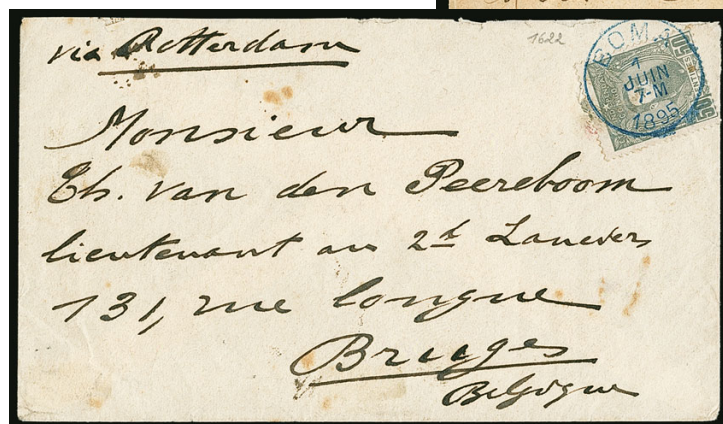 via Rotterdam
1622
BOMA
1
JUIN
7-M
1895
Monsieur
Th. van den Peereboom
lieutenant au 2d Lanciers
131, rue longue
Bruges
Belgique